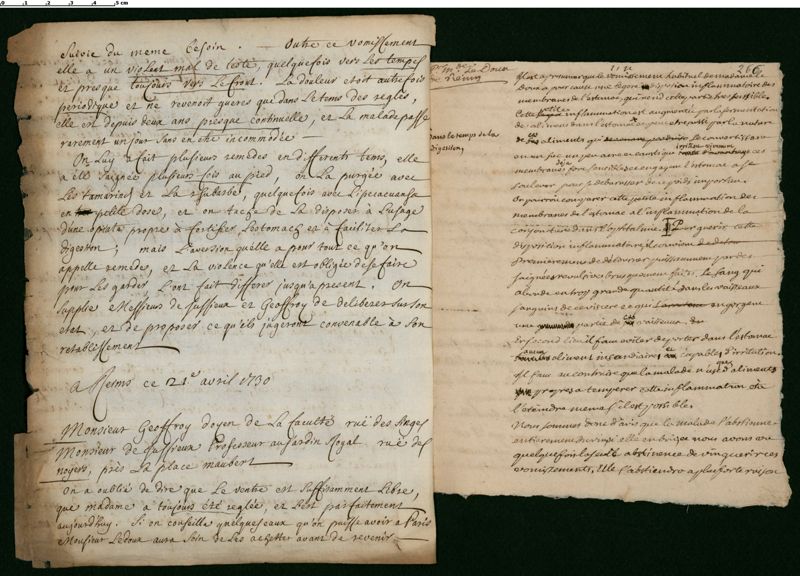 suivie du meme besoin. Outre ce vomissement
elle a un violent mal de teste, quelquefois vers les tempes
et presque toujours vers le front. La douleur etoit autrefois
periodique et ne revenoit gueres que dans le tems des regles,
elle est depuis deux ans presque continuelle, et la malade passe
rarement un jour sans en etre incommodée
On luy a fait plusieurs remedes en differents tems, elle
a esté saignée plusieurs fois au pied, on l'a purgée avec
les tamarins et la rhubarbe, quelquefois avec l'ipecacuanha
en petite dose, et on tache de la disposer a l'usage
d'une opiate propre a fortifier l'estomach et a faciliter la
digestion; mais l'aversion qu'elle a pour tout ce qu'on
appelle remedes, et la violence qu'elle est obligée de se faire
pour les garder l'ont fait differer jusqu'a present. On
supplie Messieurs de Jussieux et Geoffroy de deliberer sur son
etat, et de proposer ce qu'ils jugeront convenable a son
retablissement
a Reims ce 21e avril 1730
Monsieur Geoffroy doyen de la faculté ruë des Anges
Monsieur de Jussieux Professeur au Jardin Royal ruë des
noyers, près la place maubert
on a oublié de dire que le ventre est suffisamment libre,
que madame a toujours eté reglée, et l'est parfaitement
aujourd'huy. Si on conseilla quelques eaux qu'on puisse avoir a Paris
Monsieur Ledoux aura soin de les achetter avant de revenir
Me Le Doux
de Reims
266
dans le temps de la
digestion,
Il est a remarquer que le vomissement habituel de madame le
doux a pour cause une legere disposition inflammatoire des
membranes de l'estomac qui rend cette partie tres sensible
Cette petite inflammation est augmentée par la fermentation
des aliments dans l'estomac
membranes fort sensibles engagent l'estomac a se
soulever pour se debarrasser de ce poids importun.
On pourroit comparer cette petite inflammation des
membranes de l'estomac a l'inflammation de la
conjonctive dans l'ophtalmie. Pour guerir cette
disposition inflammatoire il convient de
Premierement de detourner puissamment par des
saignées revulsives brusquement faites, le sang qui
aborde en trop grande quantité dans les vaisseaux
sanguins de ce viscere et qui engorgent
une partie de ces vaisseaux.
En second lieu il faut eviter de porter dans l'estomac
aucun aliment incendiaire et capable d'irritation.
Il faut au contraire que la malade n'use que d'aliments
propres a temperer cette inflammation et a
l'eteindre meme s'il est possible.
Nous sommes donc d'avis que la malade s'abstienne
entierement du vin; elle en
quelquefois la seule abstinence de vin guerir ces
vomissements. Elle s'abstiendra a plus forte raison